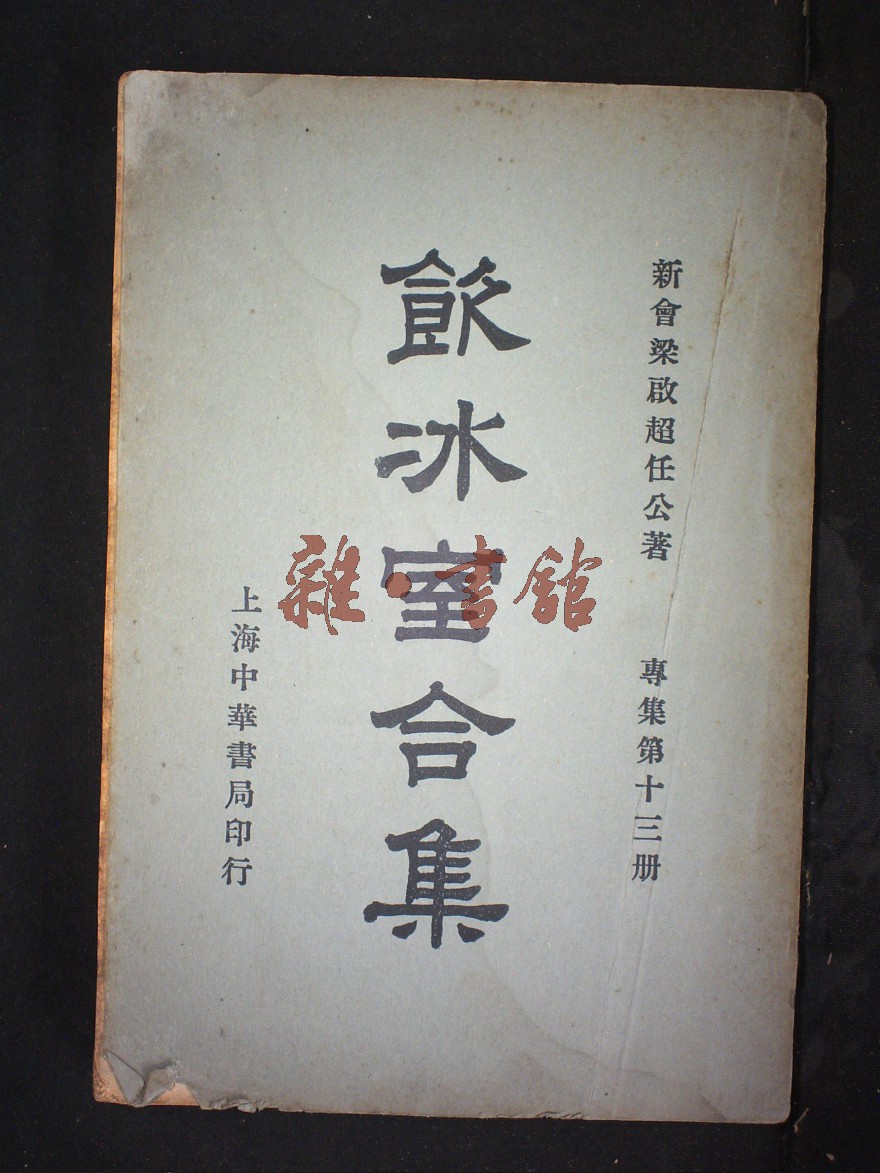 新會梁啟超任公著　專集第十三册
飲冰室合集
上海中華書局印行
雜·書館